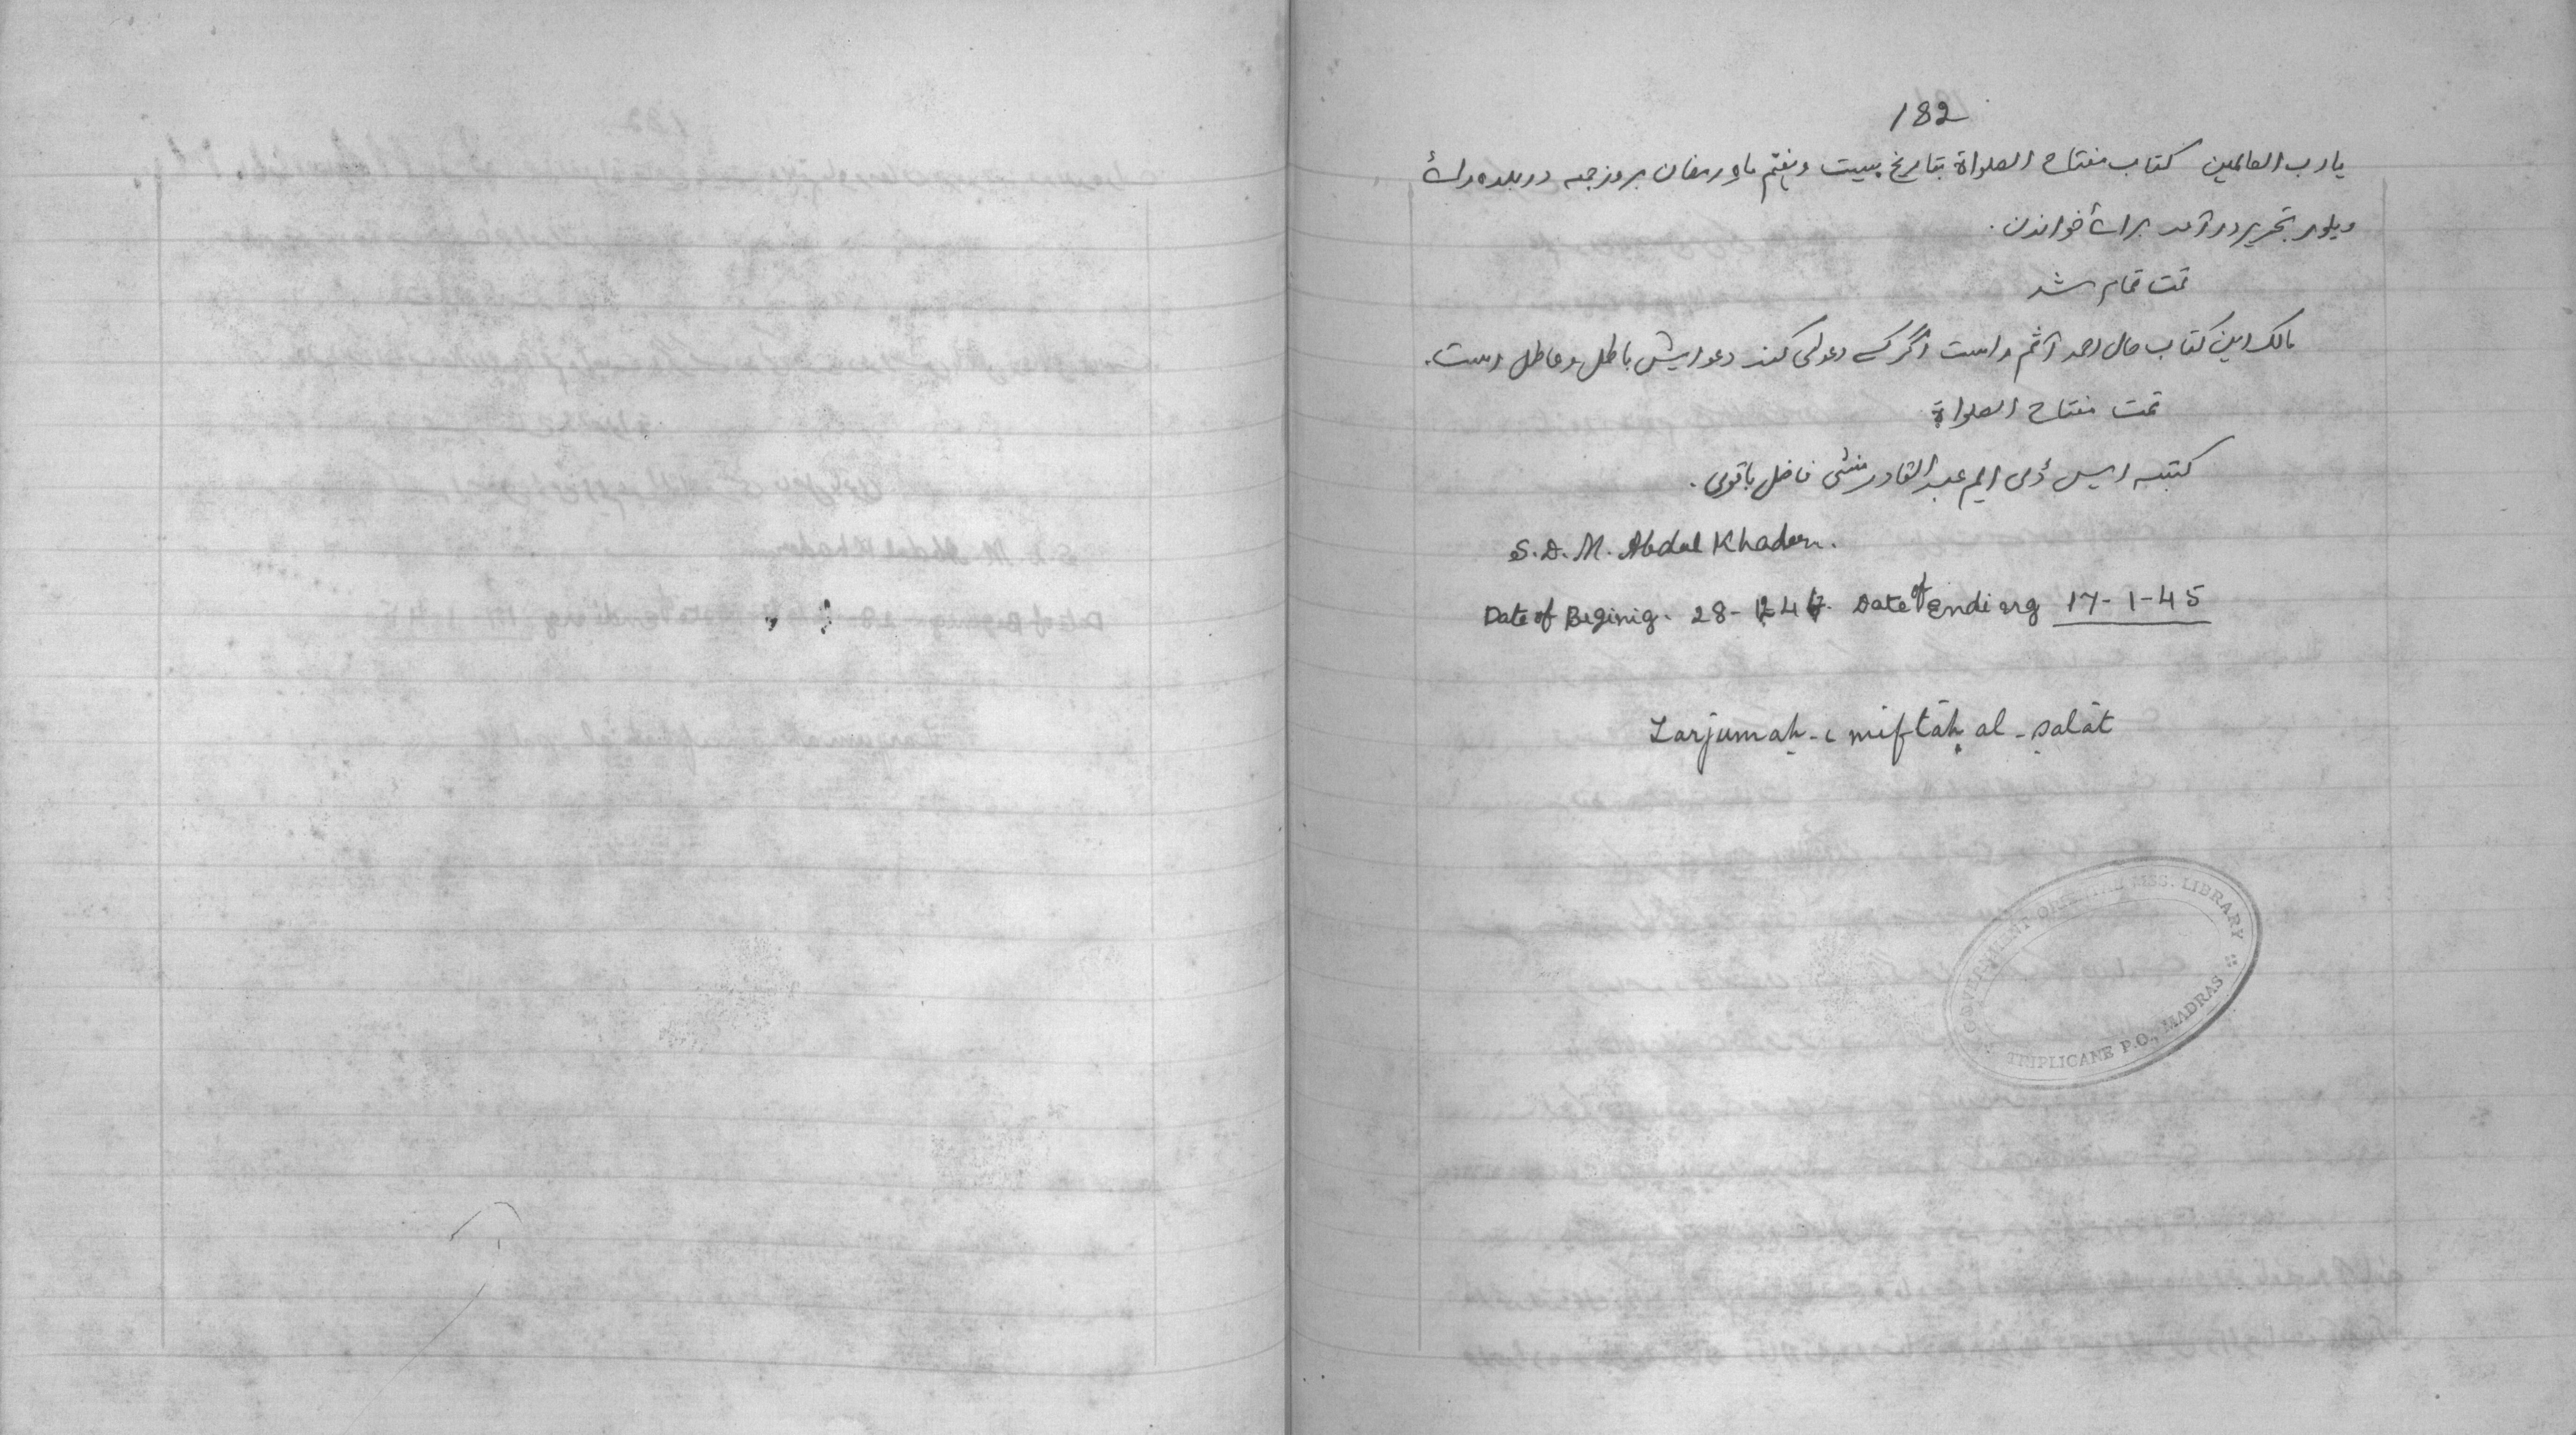 182
یا رب العالمین کتاب مفتاح الصلواة بتاریخ بیست و یغتم ماه رمضان بروز جمعه در بلده رائے
ویلور بتحریر در آمد برائے خواندن.
تمت تمام شد
مالک این کتاب مال احمد آثم است اگر کسے دعوی کند دعوایش باطل و عاطل است.
تمت مفتاح الصلواة
کتبه ایس ڈی ایم عبد القادر منشی فاضل باقوی.
S. D. M. Abdul Khader.
Date of Biginig. 28-12-4 Date of Ending 17-1-45
Tarjumah-i miftāḥ al-ṣalāt
GOVERNMENT ORIENTAL MSS. LIBRARY
TRIPLICANE P.O., MADRAS